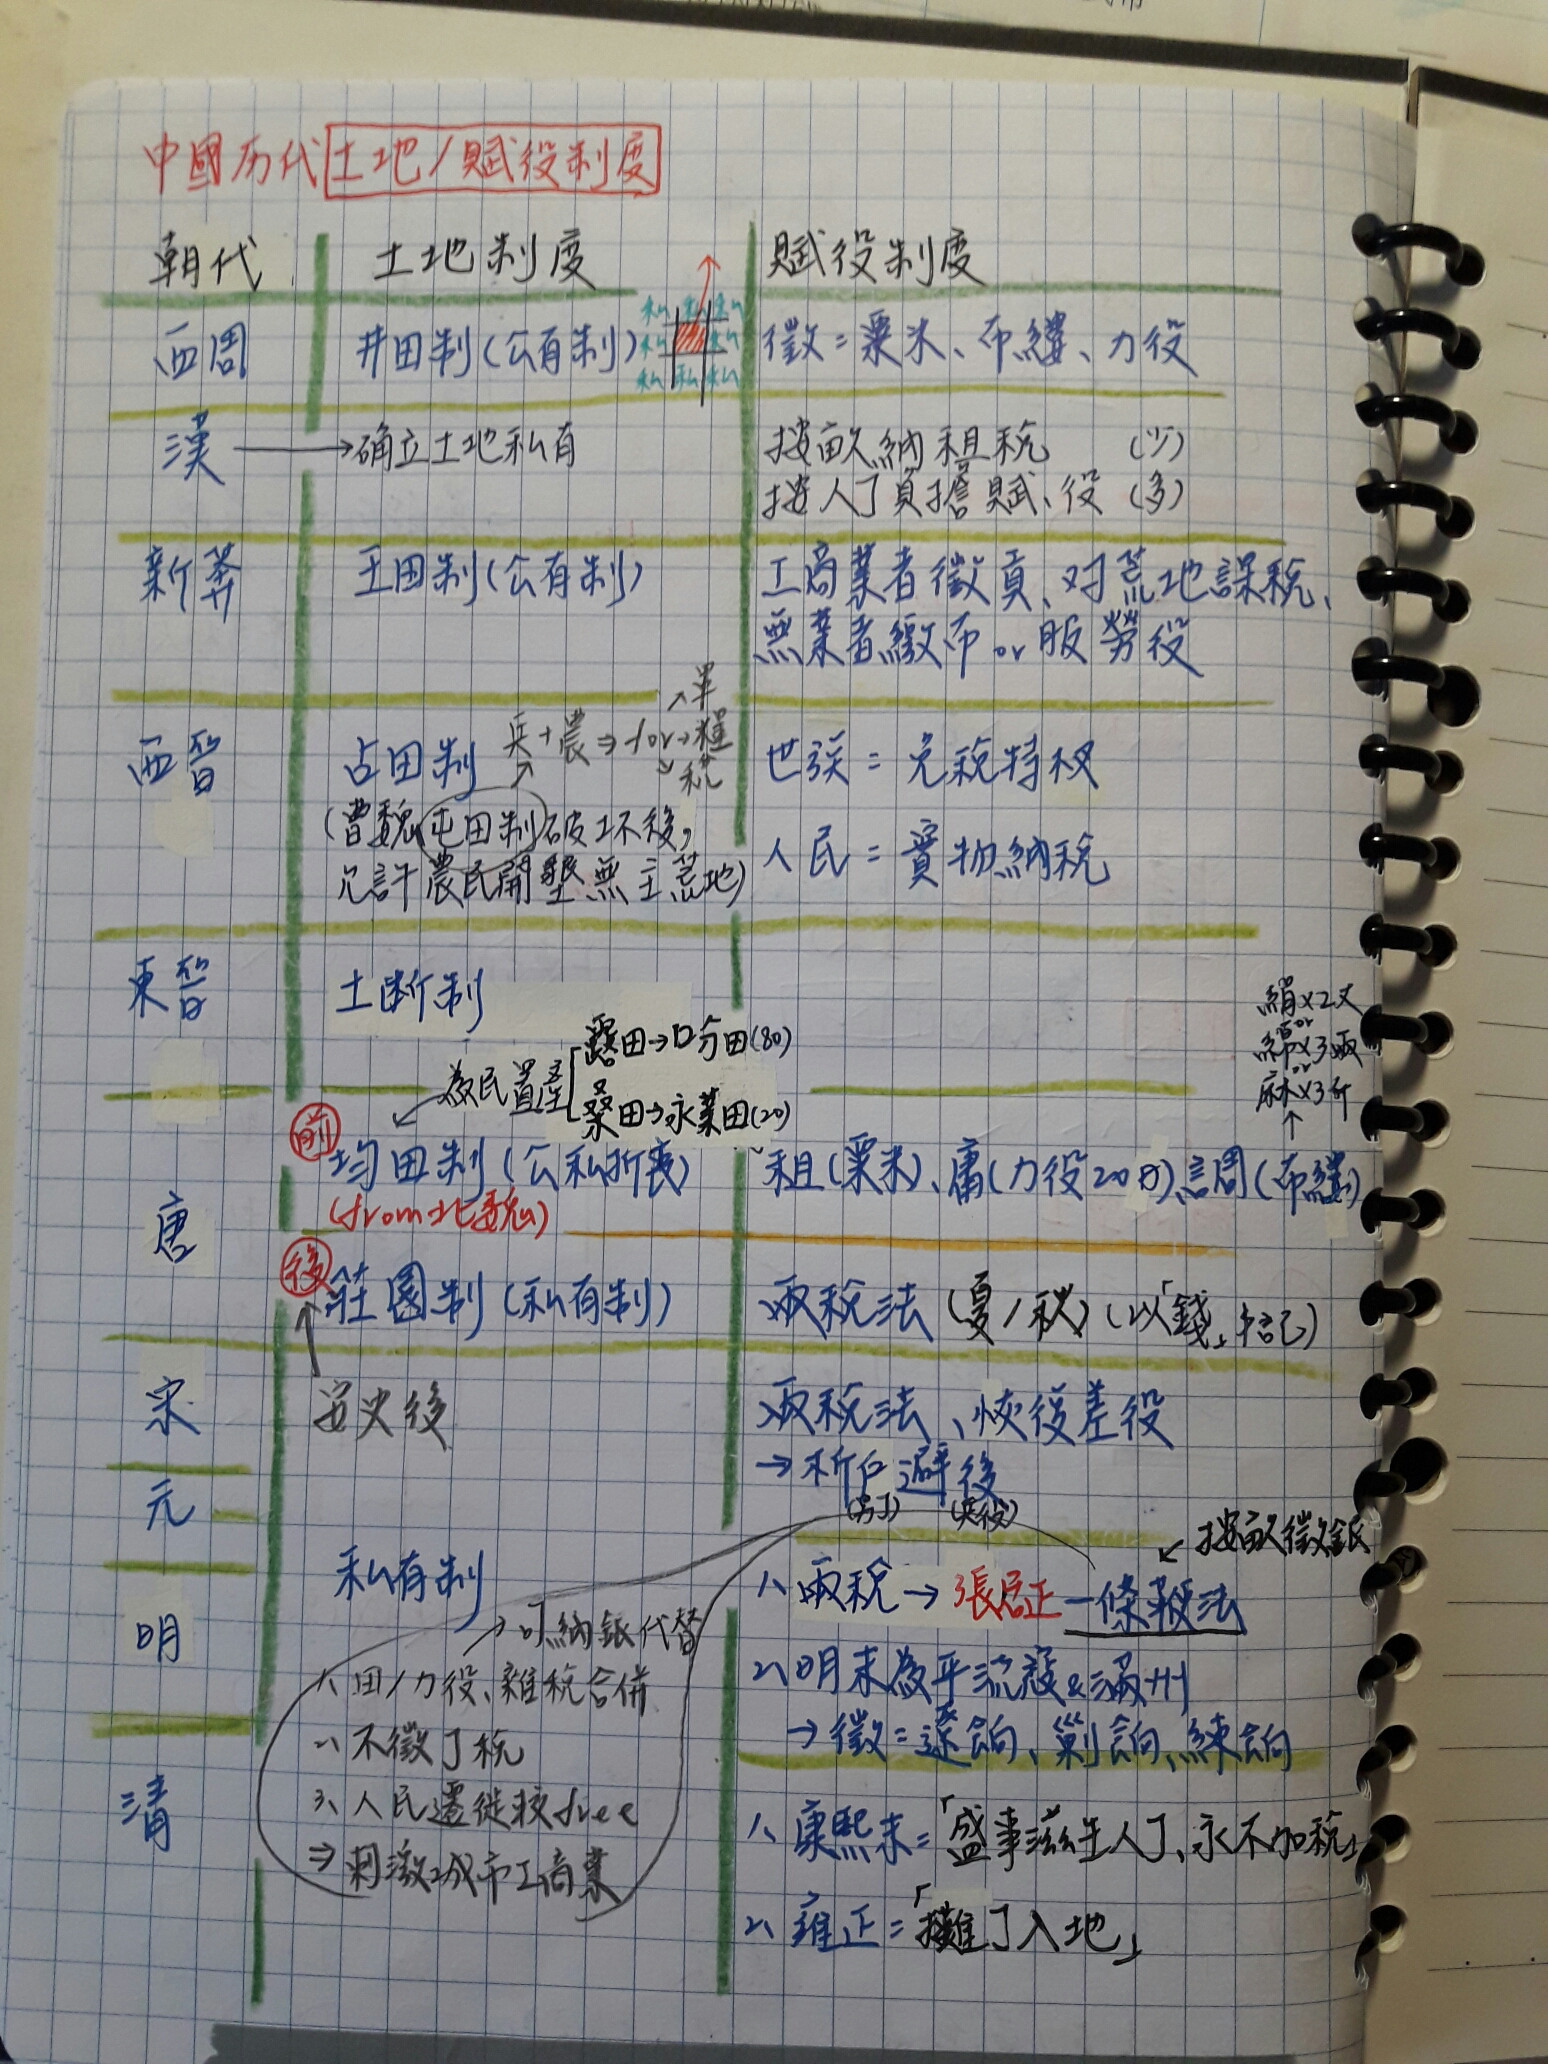 中國历代土地/賦役制度
朝代 土地制度 賦役制度
西周 井田制(公有制) 徵=粟米、布縷、力役
私 私 私
私 私
私 私 私
漢→确立土地私有 按畝納租稅 (少)
按人丁負擔賦、役 (多)
新莽 王田制(公有制) 工商業者徵貢、对荒地課稅、
無業者繳布or服勞役
西晉 占田制 世族=免稅特权
兵+農⇒for→軍
糧
稅
(曹魏屯田制破坏後,
允許農民開墾無主荒地)
人民=實物納稅
東晉 土断制
為民置產
露田→口分田(80)
桑田→永業田(20)
絹x2丈
or
綿x3兩
or
麻x3斤
唐
前 均田制(公私折衷) 租(粟米)、庸(力役20日)、調(布縷)
(from北魏)
後 莊園制(私有制) 兩稅法(夏/秋)(以「錢」卡記)
安史後
宋 兩稅法、恢復差役
→析户避役
元
明 私有制
1、兩稅→張居正一條鞭法
按畝徵銀
2、明末為平流寇&滿州
→徵=遼餉、剿餉、練餉
→可納銀代替
1、田/力役、雜稅合併
2、不徵丁稅
3、人民遷徙較free
⇒刺激城市工商業
清
1、康熙末=「盛事滋生人丁、永不加稅」
2、雍正=「攤丁入地」